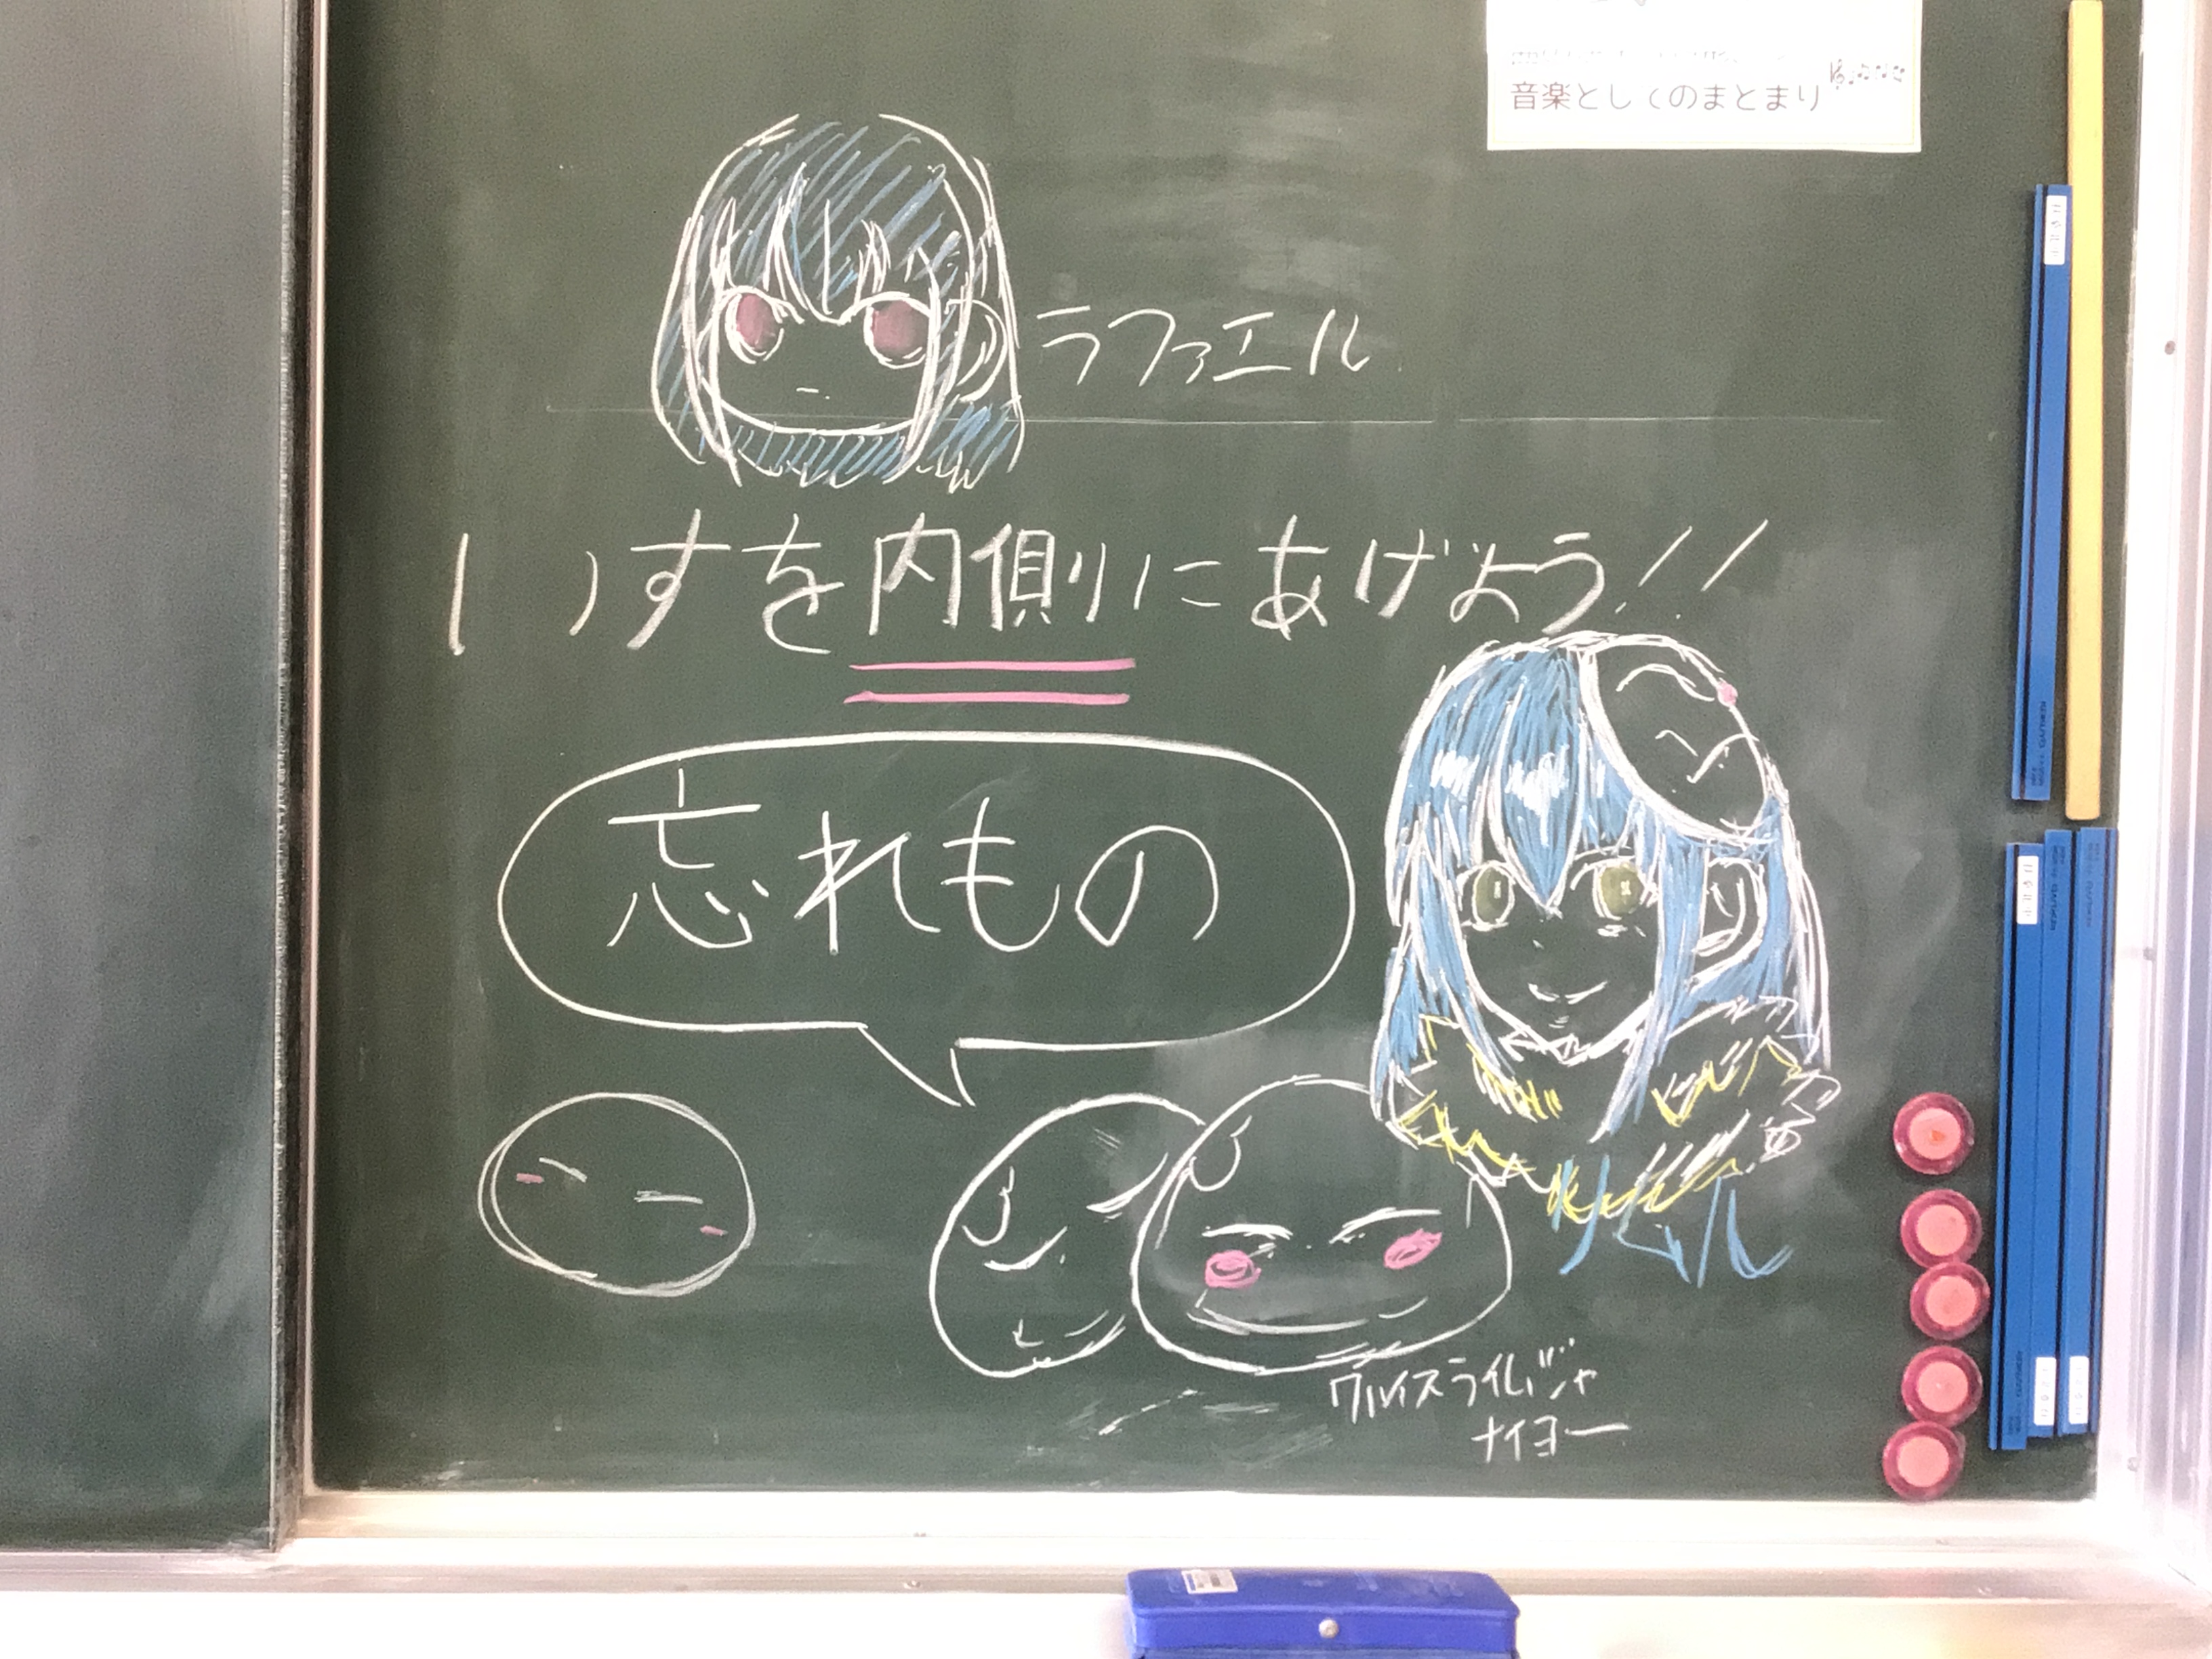 音楽としてのまとまり
ラファエル
いすを内側にあげよう!!
忘れもの
リムル
ワルイスライムジャ
ナイヨー